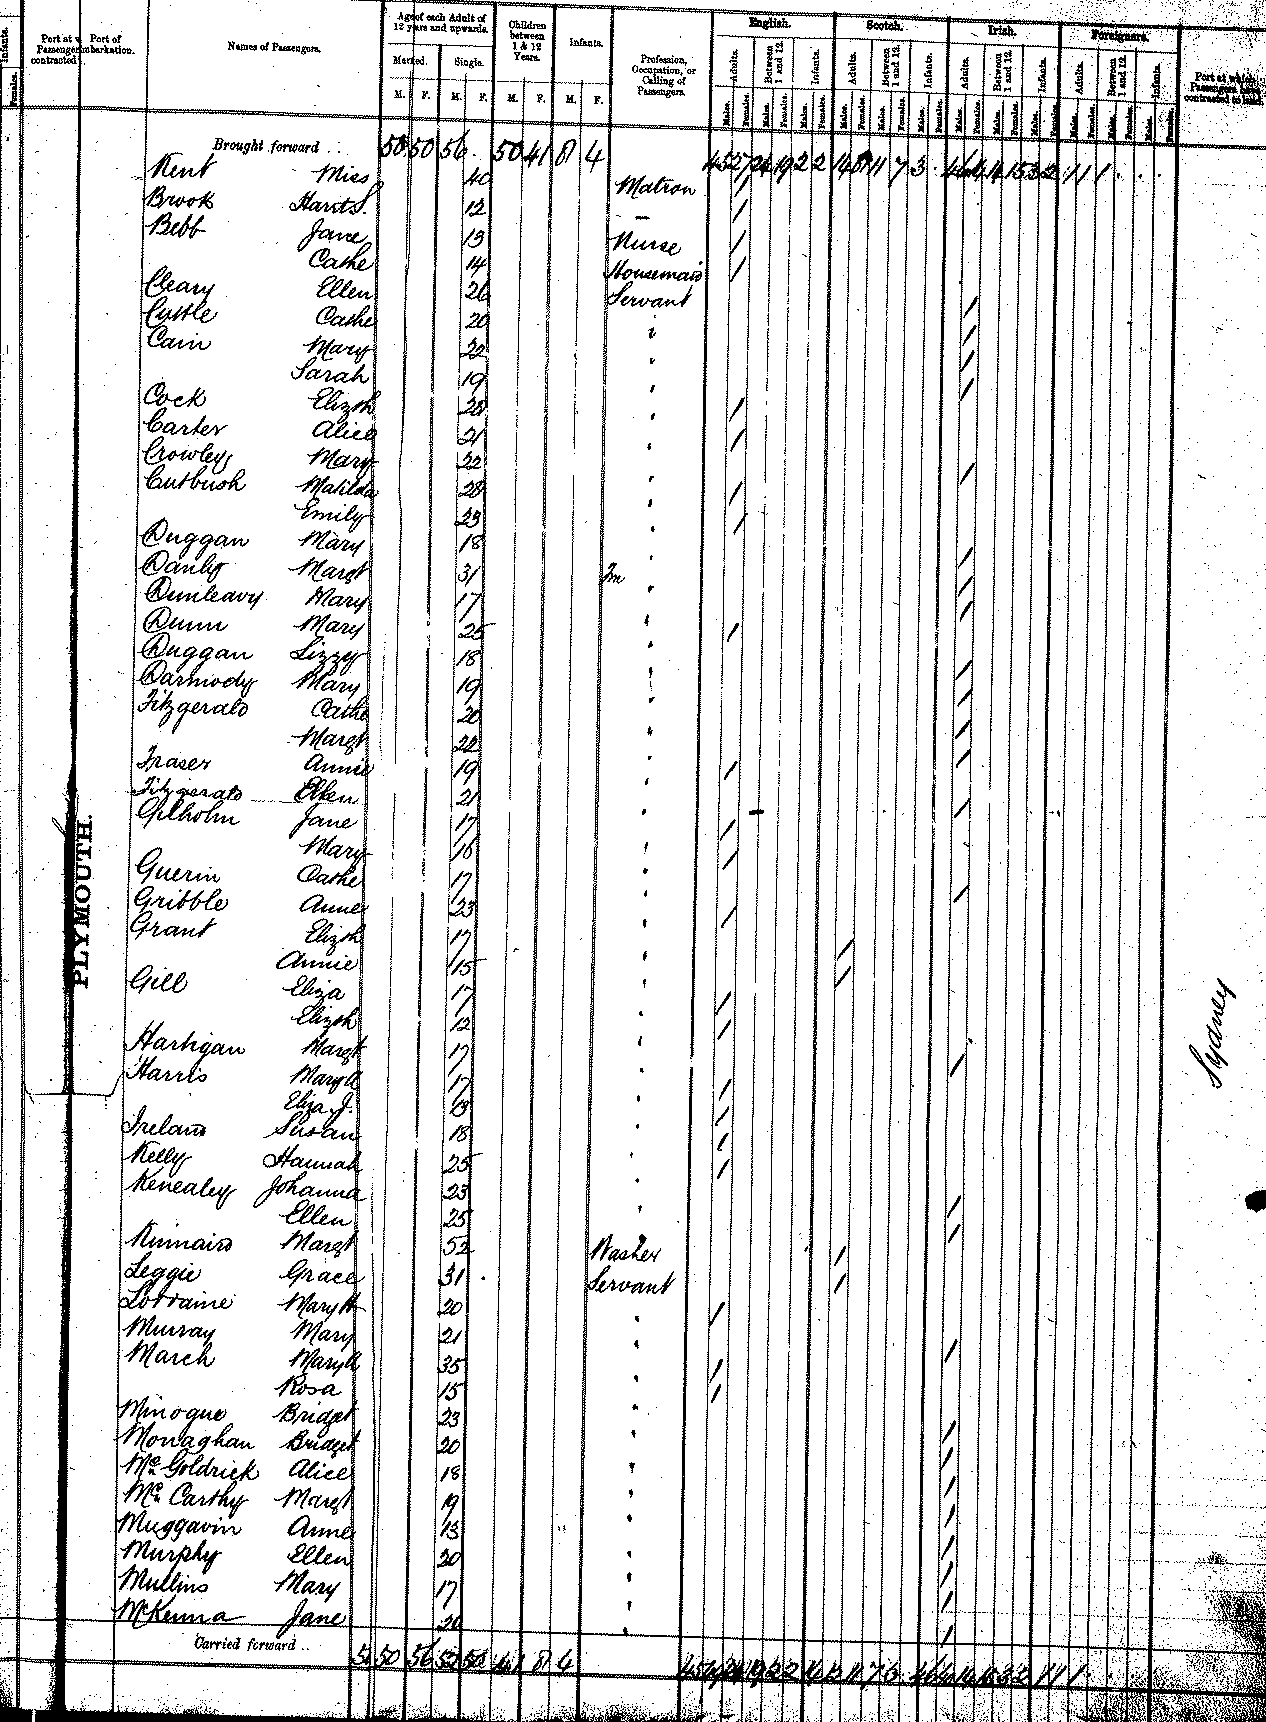 Infants.
Females.
Port at
Passengers
contracted
Port of
Embarkation.
Names of Passengers.
Age of each Adult of
12 years and upwards.
Married. Single.
M. F. M. F.
Children
between
1 & 12
Years.
M. F.
Infants.
M. F.
Profession,
Occupation, or
Calling of
Passengers.
English. Scotch. Irish. Foreigners.
Adults. Between 1 and 12. Infants. Adults. Between 1 and 12. Infants. Adults. Between 1 and 12. Infants. Adults. Between 1 and 12. Infants.
Males. Females. Males. Females. Males. Females. Males. Females. Males. Females. Males. Females. Males. Females. Males. Females. Males. Females. Males. Females. Males. Females. Males. Females.
Port at which
Passengers have
contracted to land.
Brought forward .. 50 50 56 50 41 8 4
Kent Miss 40 Matron
Brook Harrt S. 12 —
Bebb Jane 13 Nurse
Cathe 14 Housemaid
Cleary Ellen 26 Servant
Custle Cathe 20 "
Cain Mary 22 "
Sarah 19 "
Cock Elizth 28 "
Carter Alice 21 "
Crowley Mary 22 "
Cutbush Matilda 28 "
Emily 23 "
Duggan Mary 18 "
Danby Margt 31 "
Dunleavy Mary 17 "
Dunn Mary 25 "
Duggan Lizzey 18 "
Darmody Mary 19 "
Fitzgerald Cathe 20 "
Margt 22 "
Fraser Annie 19 "
Fitzgerald Ellen 21 "
Gilholm Jane 17 "
Mary 16 "
Guerin Cathe 17 "
Gribble Anne 23 "
Grant Elizth 17 "
Annie 15 "
Gill Eliza 17 "
Elizth 12 "
Hartigan Margt 17 "
Harris Mary A 17 "
Eliza J. 13 "
Ireland Susan 18 "
Kelly Hannah 25 "
Kenealey Johanna 23 "
Ellen 25 "
Kinnaird Margt 52 Washer
Leggie Grace 31 Servant
Lorraine Mary H 20 "
Murray Mary 21 "
March Mary A 35 "
Rosa 15 "
Minogue Bridget 23 "
Monaghan Bridget 20 "
McGoldrick Alice 18 "
McCarthy Margt 19 "
Muggavin Anne 13 "
Murphy Ellen 20 "
Mullins Mary 17 "
McKenna Jane 20 "
Carried forward ..
PLYMOUTH.
Sydney